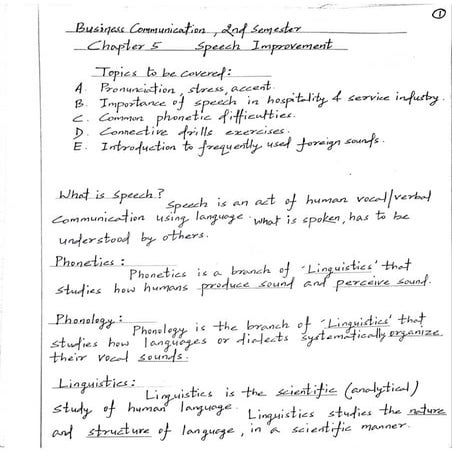 ①
Business Communication, 2nd Semester
Chapter 5 Speech Improvement
Topics to be covered:
A. Pronunciation, stress, accent.
B. Importance of speech in hospitality & service industry.
C. Common phonetic difficulties.
D. Connective drills exercises.
E. Introduction to frequently used foreign sounds.
What is Speech?
Speech is an act of human vocal/verbal
communication using language. What is spoken, has to be
understood by others.
Phonetics:
Phonetics is a branch of 'Linguistics' that
studies how humans produce sound and perceive sound.
Phonology:
Phonology is the branch of 'Linguistics' that
studies how languages or dialects systematically organize
their vocal sounds.
Linguistics:
Linguistics is the scientific (analytical)
study of human language. Linguistics studies the nature
and structure of language, in a scientific manner.